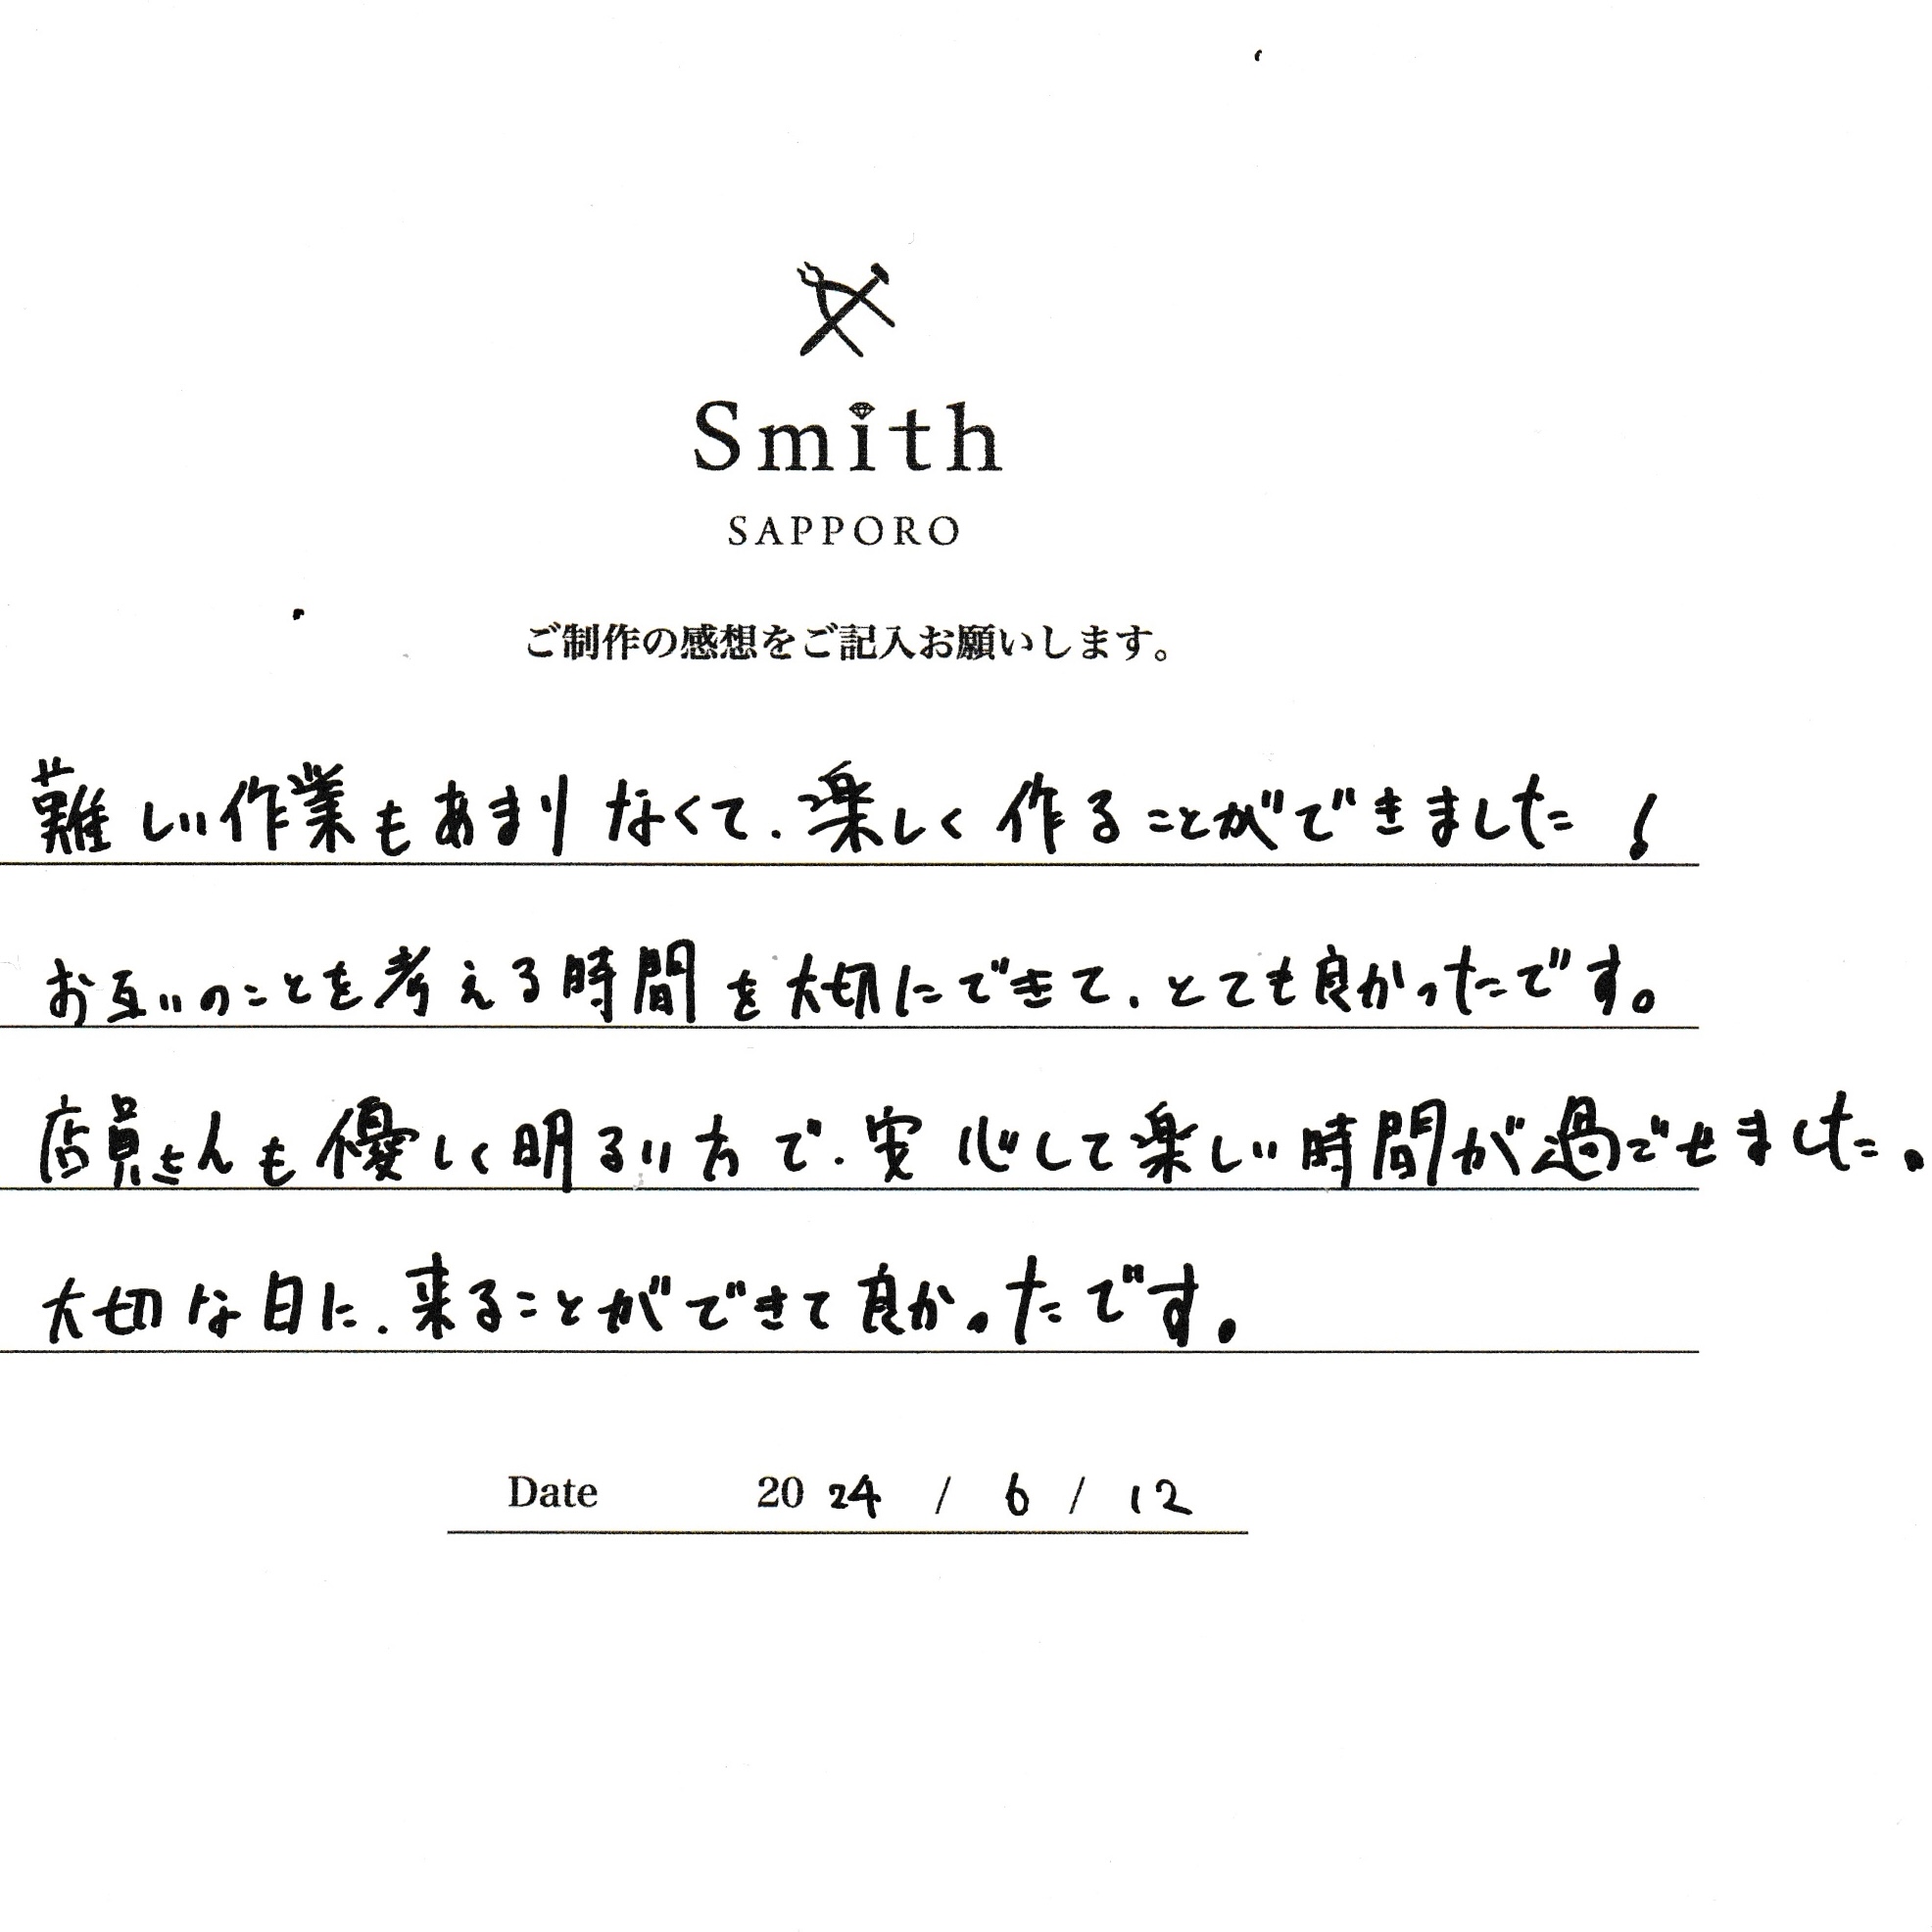 Smith
SAPPORO
ご制作の感想をご記入お願いします。
難しい作業もあまりなくて、楽しく作ることができました!
お互いのことを考える時間を大切にできて、とても良かったです。
店員さんも優しく明るい方で、安心して楽しい時間が過ごせました。
大切な日に、来ることができて良かったです。
Date 2024 / 6 / 12